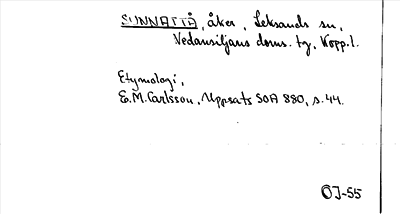 SUNNATTÅ, åker, Leksands sn,
Vedansiljans doms. tg, Kopp. l.
Etymologi,
E.M. Carlsson, Uppsats SOA 880, s. 44.
ÖJ-55